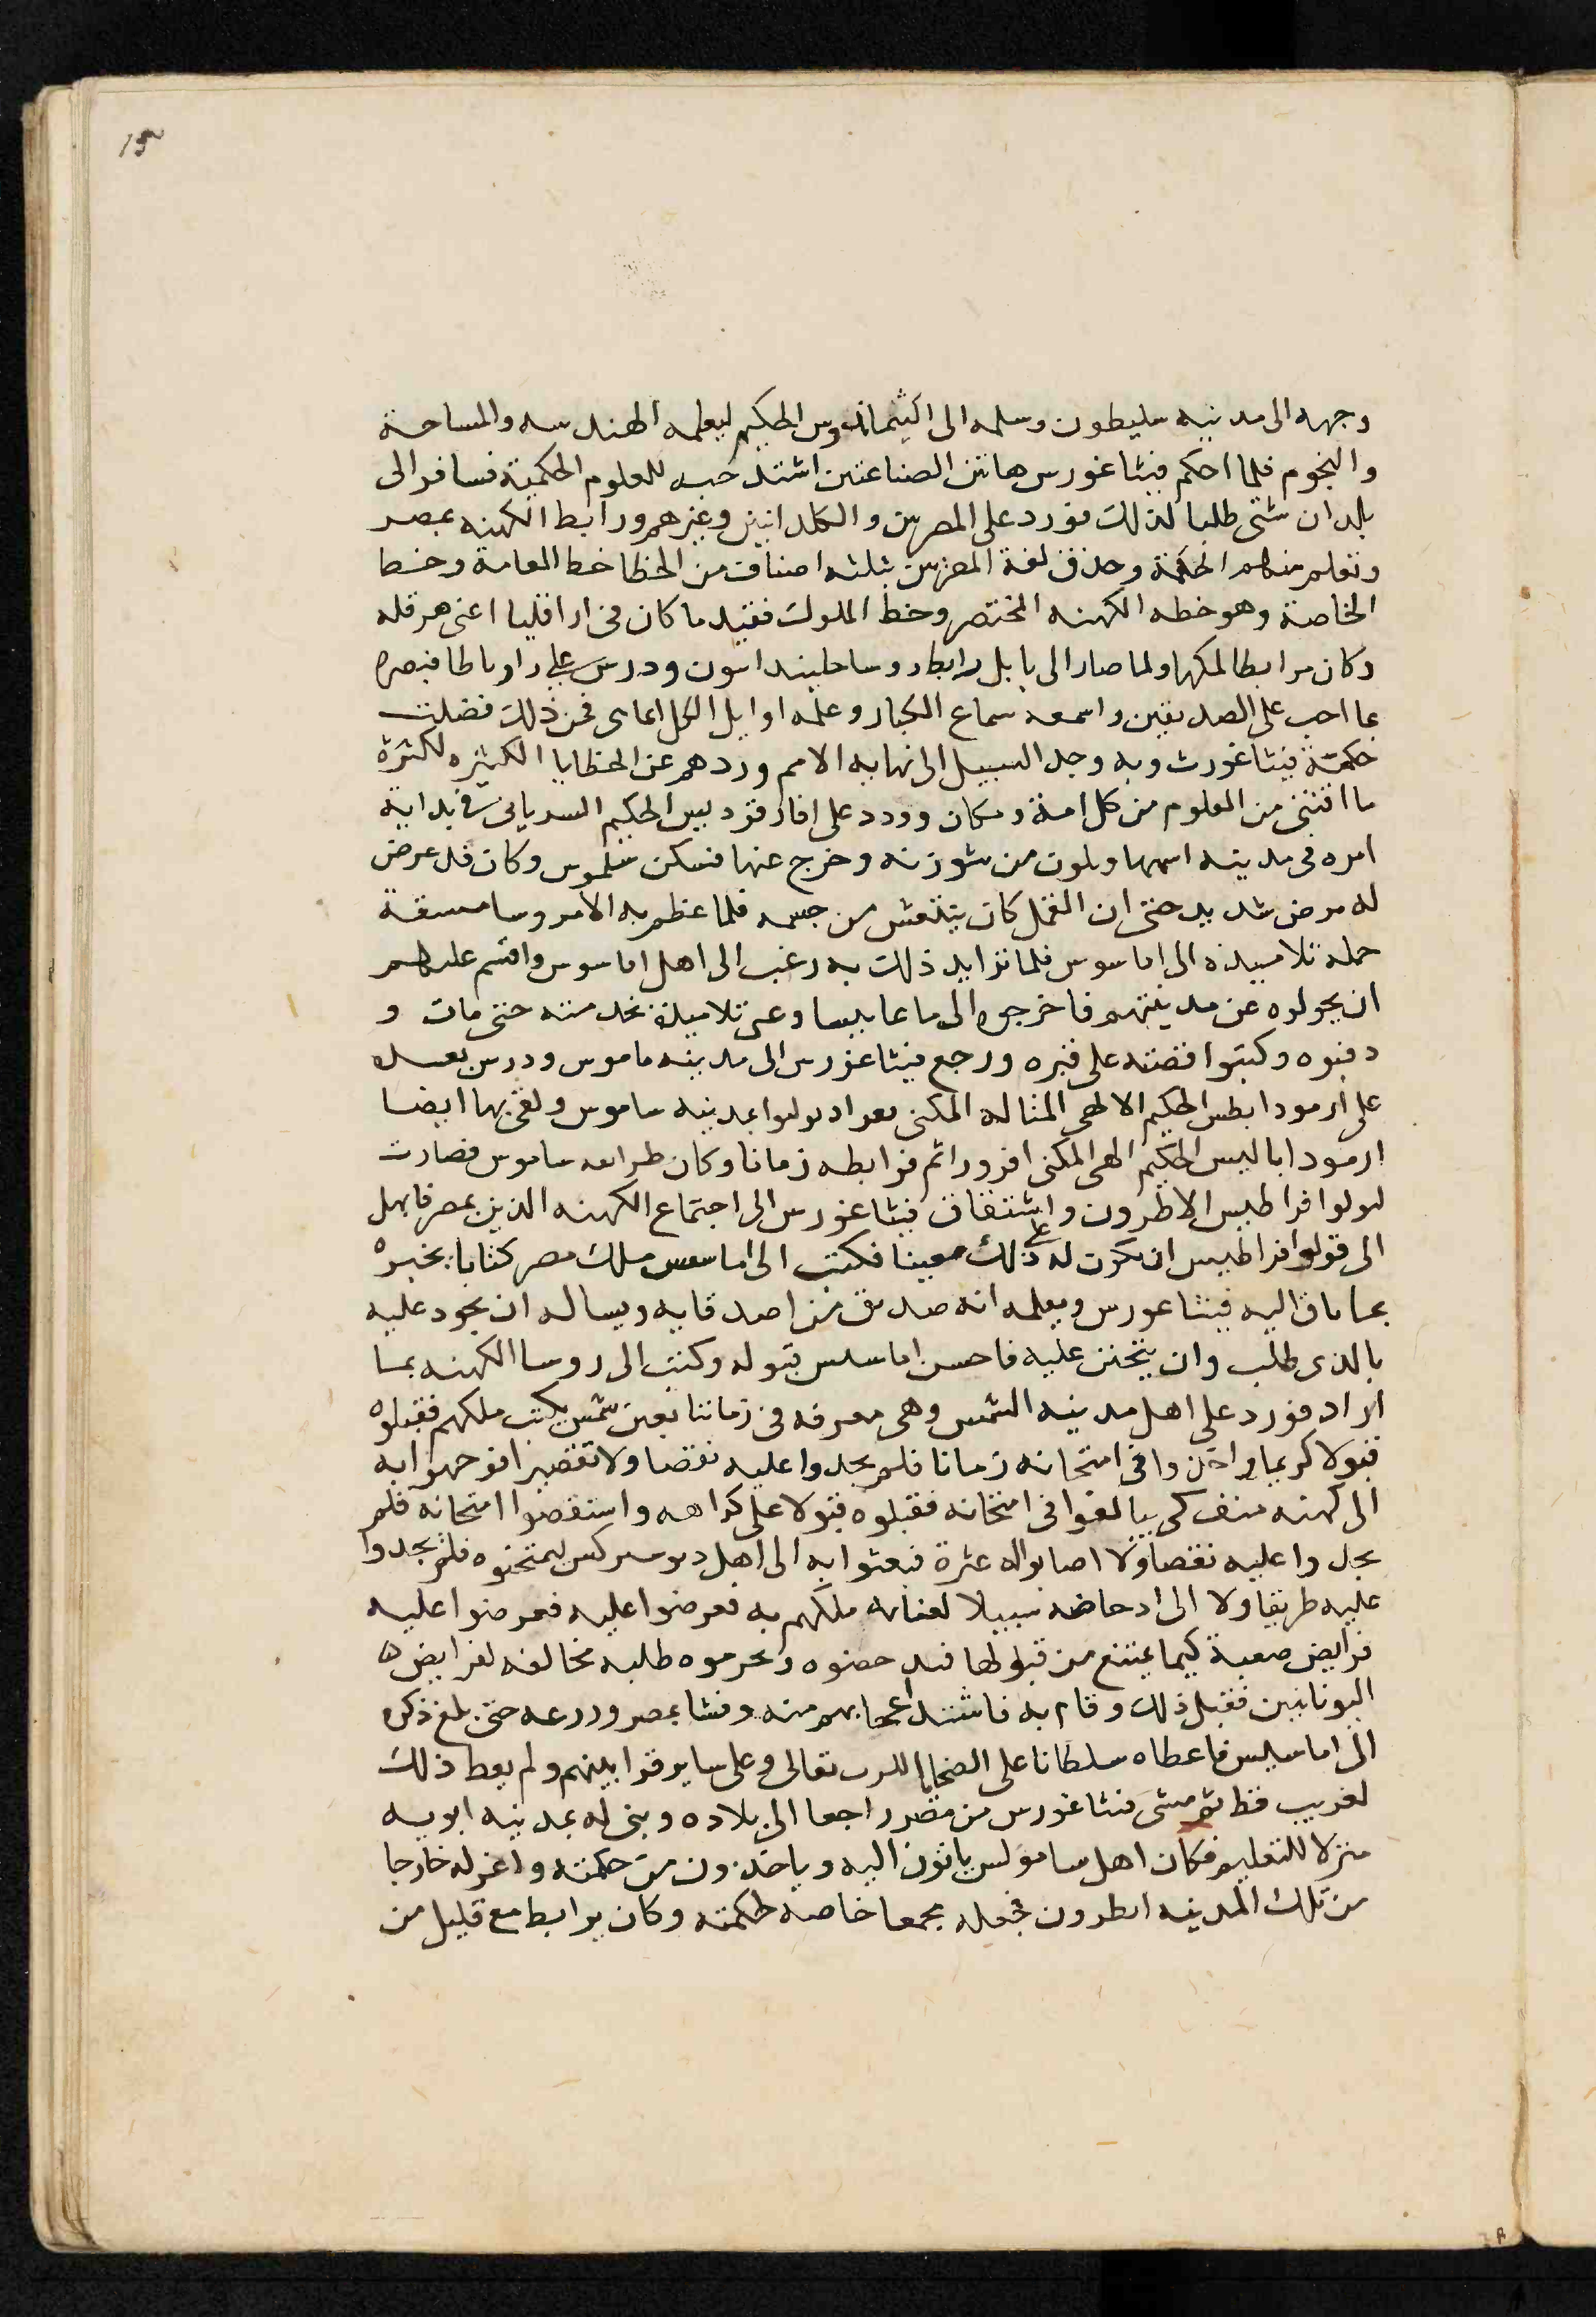 15
وجهه الى مدينه مليطون وسلمه الى اكثيماندروس الحكيم ليعلمه الهندسه والمساحة
والنجوم فلما احكم فيثاغورس هاتين الصناعتين اشتد حبه للعلوم الحكمية فسافر الى
بلدان شتى طلبا لذلك فورد على المصريين والكلدانيين وغيرهم ورابط الكهنه بمصر
وتعلم منهم الحكمة وحذق لغة المصريين بثلثه اصناف من الخط خط العامة وخط
الخاصة وهو خطه الكهنه المختصر وخط الملوك فعند ما كان في اراقليا اعنى هرقله
وكان مرابطا لملكها ولما صار الى بابل رابط روسا حلينداسون ودرس على راوباطا فبصره
بما احب على الصديقين واسمعه سماع الكبار وعلمه اوايل الكل ايماهى فمن ذلك فضلت
حكمة فيثاغورث وبه وجد السبيل الى نهايه الامم وردهم عن الخطايا الكثيره لكثرة
ما اقتنى من العلوم من كل امة ومكان وورد على افارقوديس الحكيم السريانى في بداية
امره في مدينه اسمها ديلون من سورنه وخرج عنها فسكن سلموس وكان قد عرض
له مرض شديد حتى ان القمل كان ينتعش من جسمه فلما عظم به الامر وسا مسقة
حمله تلاميذه الى افاسوس فلما تزايد ذلك به رغب الى اهل افاسوس واقسم عليهم
ان يحولوه عن مدينتهم فاخرجوه الى ماعانيسا وعنى تلاميذه بخدمته حتى مات و
دفنوه وكتبوا قصته على قبره ورجع فيثاغورس الى مدينه ماموس ودرس بعده
على ارمودابطس الحكيم الالهى المتاله المكنى بمدينه ساموس ولقى بها ايضا
ارمودابالبيس الحكيم الهى المكنى افروراثم فرابطه زمانا وكان طرانه ساموس فصارت
لبولوا فراطيس الاطرون واشتقاق فيثاغورس الى اجتماع الكهنه الذين بمصر فابهل
الى فولوافراطيس ان يكون له على ذلك معينا فكتب الى اماسيس ملك مصر كتابا يخبره
بما تاق اليه فيثاغورس ويعلمه انه صديق من اصدقايه ويساله ان يجود عليه
بالذى طلب وان يتحنن عليه فاحسن اماسيس قبوله وكتب الى روسا الكهنه بما
اراد فورد على اهل مدينه الشمس وهى معرفه في زماننا بعين شمس بكتب ملكهم فقبلوه
قبولا كريما واخذوا في امتحانه زمانا فلم يجدوا عليه نقصا ولا تقصيرا فوجهوا به
الى كهنه منف كى يبالغوا في امتحانه فقبلوه قبولا على كراهه واستقصوا امتحانه فلم
يجدوا عليه نقصا ولا اصابوا له عثرة فبعثوا به الى اهل ديوسبركس ليمتحنوه فلم يجدوا
عليه طريقا ولا الى ادحاضه سبيلا لعنايه ملكهم به فعرضوا عليه فعرضوا عليه
فرايض صعبة كيما يمتنع من قبولها فيدحضوه ويحرموه طلبه مخالفه لفرايض
اليونانيين فقبل ذلك وقام به فاشتد اعجابهم منه وفشا بمصر وورعه حتى بلغ ذكره
الى اماسيس فاعطاه سلطانا على الضحايا للرب تعالى وعلى ساير قرابينهم ولم يعط ذلك
لغريب قط ثم مشى فيثاغورس من مصر راجعا الى بلاده وبنى له بمدينه ابويه
منزلا للتعليم فكان اهل ساموليس ياتون اليه وياخذون من حكمته واعزله خارجا
من تلك المدينه انطرون فجعله مجمعا خاصه لحكمته وكان يرابط مع قليل من